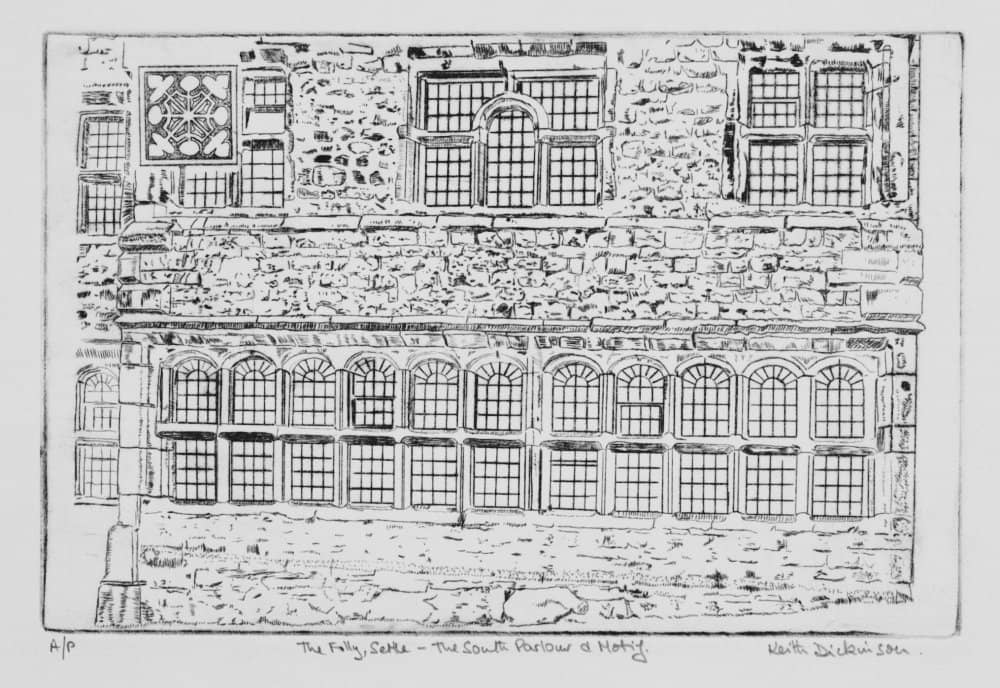 A/P The Folly, Settle – The South Parlour & Motif. Keith Dickinson.